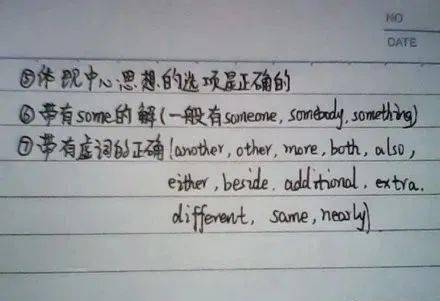 NO
DATE
⑤体现中心思想的选项是正确的
⑥带有some的解(一般有someone, somebody, something)
⑦带有虚词的正确(another, other, more, both, also,
either, beside. additional, extra.
different, same, nearly)